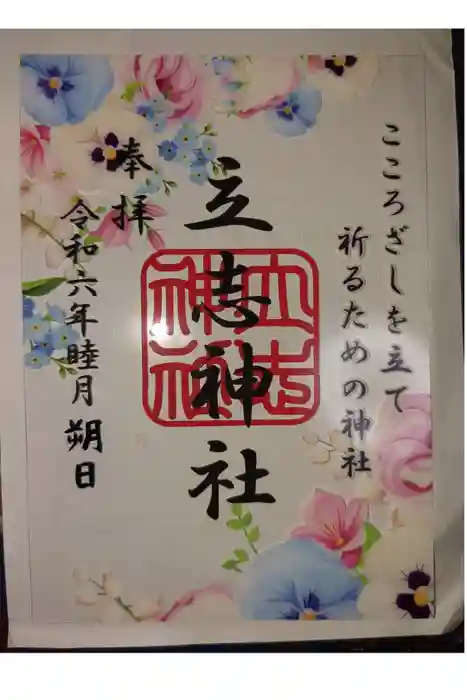 こころざしを立て
祈るための神社
立志神社
立志神社
奉拝
令和六年睦月朔日